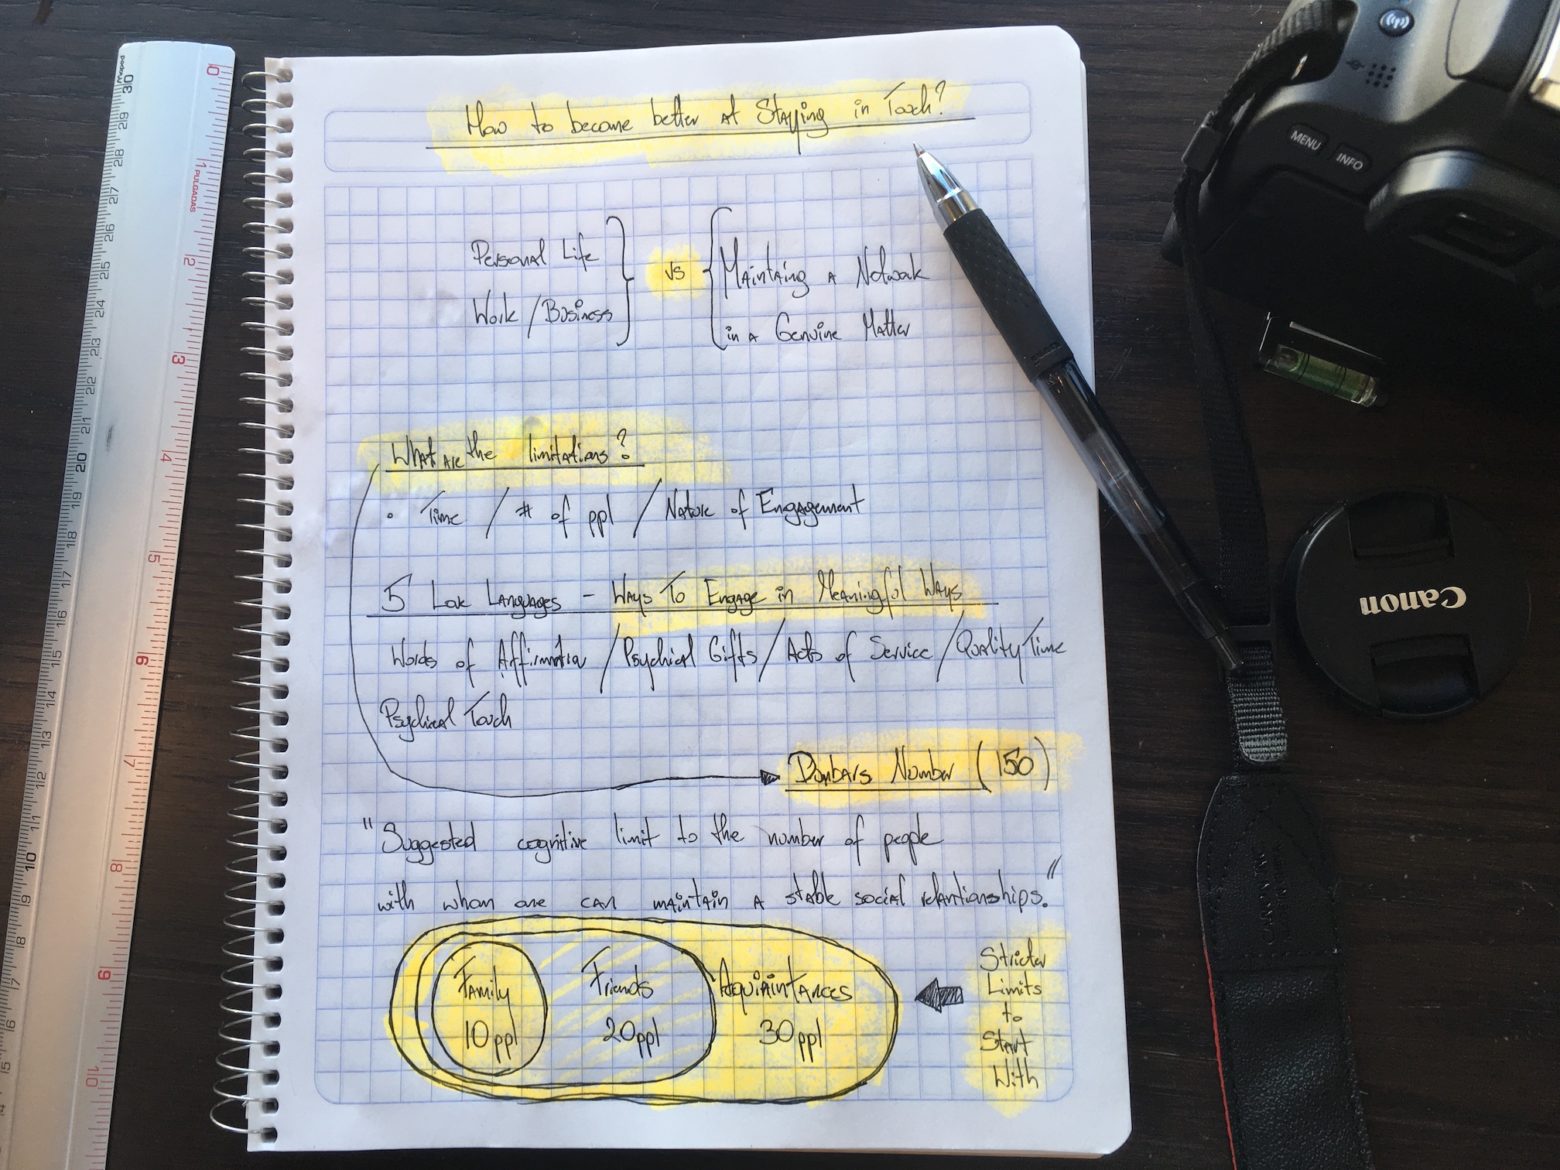 How to become better at Staying in Touch?
Personal Life
Work / Business
vs
Maintaing a Network
in a Genuine Matter
What are the limitations?
• Time / # of ppl / Nature of Engagement
5 Love Languages - Ways To Engage in Meaningful Ways
Words of Affirmation / Psychical Gifts / Acts of Service / Quality Time
Psychical Touch
Dunbars Number (150)
"Suggested cognitive limit to the number of people
with whom one can maintain a stable social relantionships."
Family
10 ppl
Friends
20 ppl
Aquiaintances
30 ppl
Stricter
Limits
to
Start
With
MENU
INFO
Canon
Maped
PULGADAS
30
29
28
27
26
25
24
23
22
21
20
19
18
17
16
15
14
13
12
11
10
9
8
7
6
5
0
1
2
3
4
5
6
7
8
9
10